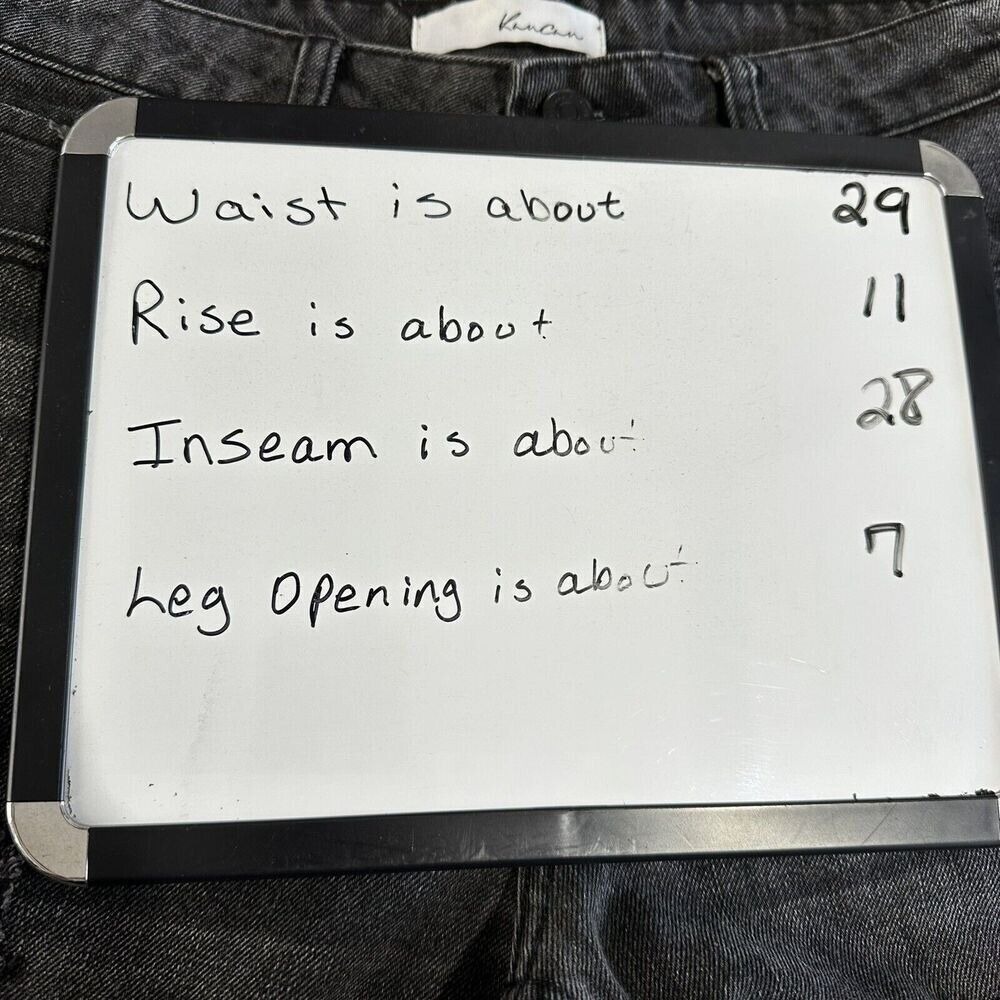 Kancan
Waist is about 29
Rise is about 11
Inseam is about 28
Leg Opening is about 7